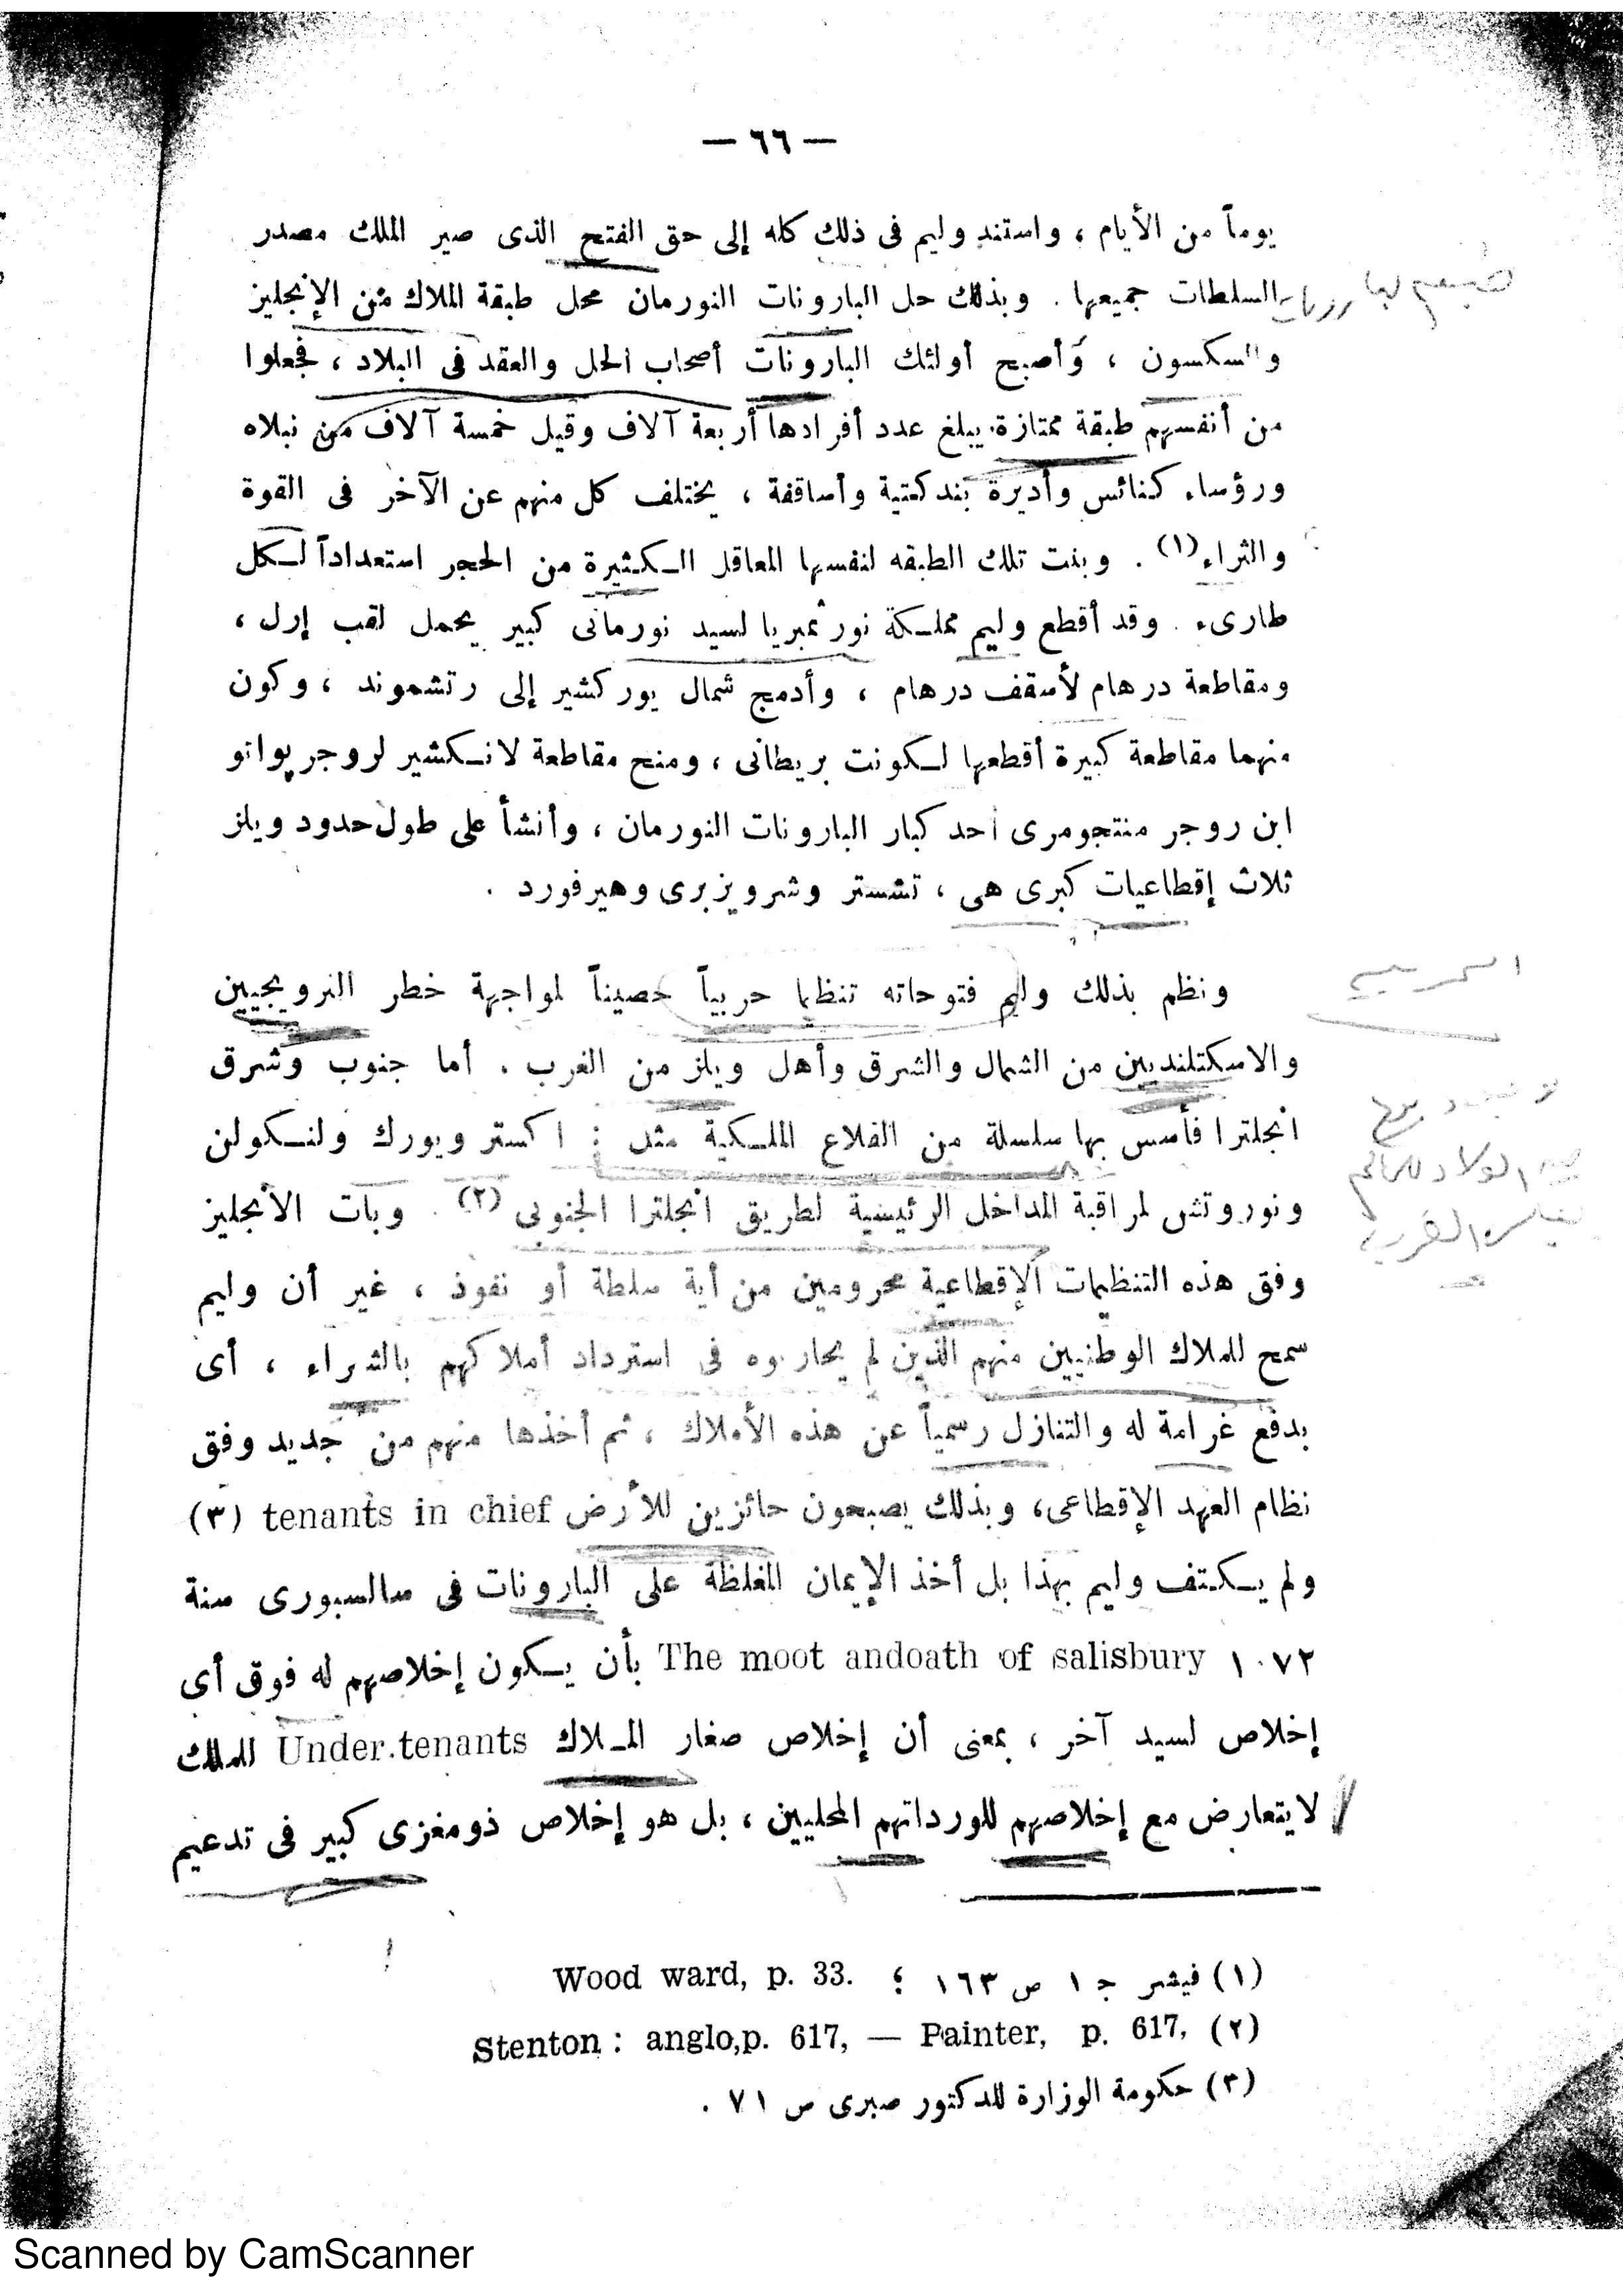 — ٦٦ —
يوماً من الأيام ، واستند وليم فى ذلك كله إلى حق الفتح الذى صير الملك مصدر
السلطات جميعها . وبذلك حل البارونات النورمان محل طبقة الملاك من الإنجليز
والسكسون ، وأصبح أولئك البارونات أصحاب الحل والعقد فى البلاد ، فجعلوا
من أنفسهم طبقة ممتازة يبلغ عدد أفرادها أربعة آلاف وقيل خمسة آلاف من نبلاه
ورؤساء كنائس وأديرة بندكتية وأساقفة ، يختلف كل منهم عن الآخر فى القوة
والثراء (١) . وبنت تلك الطبقه لنفسها المعاقل الكثيرة من الحجر استعداداً لكل
طارىء . وقد أقطع وليم مملكة نورثمبريا لسيد نورمانى كبير يحمل لقب إرل ،
ومقاطعة درهام لأسقف درهام ، وأدمج شمال يوركشير إلى رتشموند ، وكون
منهما مقاطعة كبيرة أقطعها لكونت بريطانى ، ومنح مقاطعة لانكشير لروجر پواتو
ابن روجر منتجومرى احد كبار البارونات النورمان ، وأنشأ على طول حدود ويلز
ثلاث إقطاعيات كبرى هى ، تشستر وشرويزبرى وهيرفورد .
ونظم بذلك وليم فتوحاته تنظيما حربياً حصيناً لمواجهة خطر النرويجيين
والاسكتلنديين من الشمال والشرق وأهل ويلز من الغرب . أما جنوب وشرق
انجلترا فأسس بها سلسلة من القلاع الملكية مثل : اكستر ويورك ولنكولن
ونوروتش لمراقبة المداخل الرئيسية لطريق انجلترا الجنوبى (٢) . وبات الأنجليز
وفق هذه التنظيمات الإقطاعية محرومين من أية سلطة أو نفوذ ، غير أن وليم
سمح للملاك الوطنيين منهم الذين لم يحاربوه فى استرداد أملاكهم بالشراء ، أى
بدفع غرامة له والتنازل رسمياً عن هذه الأملاك ، ثم أخذها منهم من جديد وفق
نظام العهد الإقطاعى، وبذلك يصبحون حائزين للأرض tenants in chief (٣)
ولم يكتف وليم بهذا بل أخذ الإيمان المغلظة على البارونات فى سالسبورى سنة
١٠٧٢ The moot andoath of salisbury بأن يكون إخلاصهم له فوق أى
إخلاص لسيد آخر ، بمعنى أن إخلاص صغار الملاك Under.tenants للملك
لا يتعارض مع إخلاصهم للورداتهم المحليين ، بل هو إخلاص ذو مغزى كبير فى تدعيم
(١) فيشر ج ١ ص ١٦٣ ؛ Wood ward, p. 33.
(٢) Stenton : anglo,p. 617, — Painter, p. 617,
(٣) حكومة الوزارة للدكتور صبرى ص ٧١ .
Scanned by CamScanner